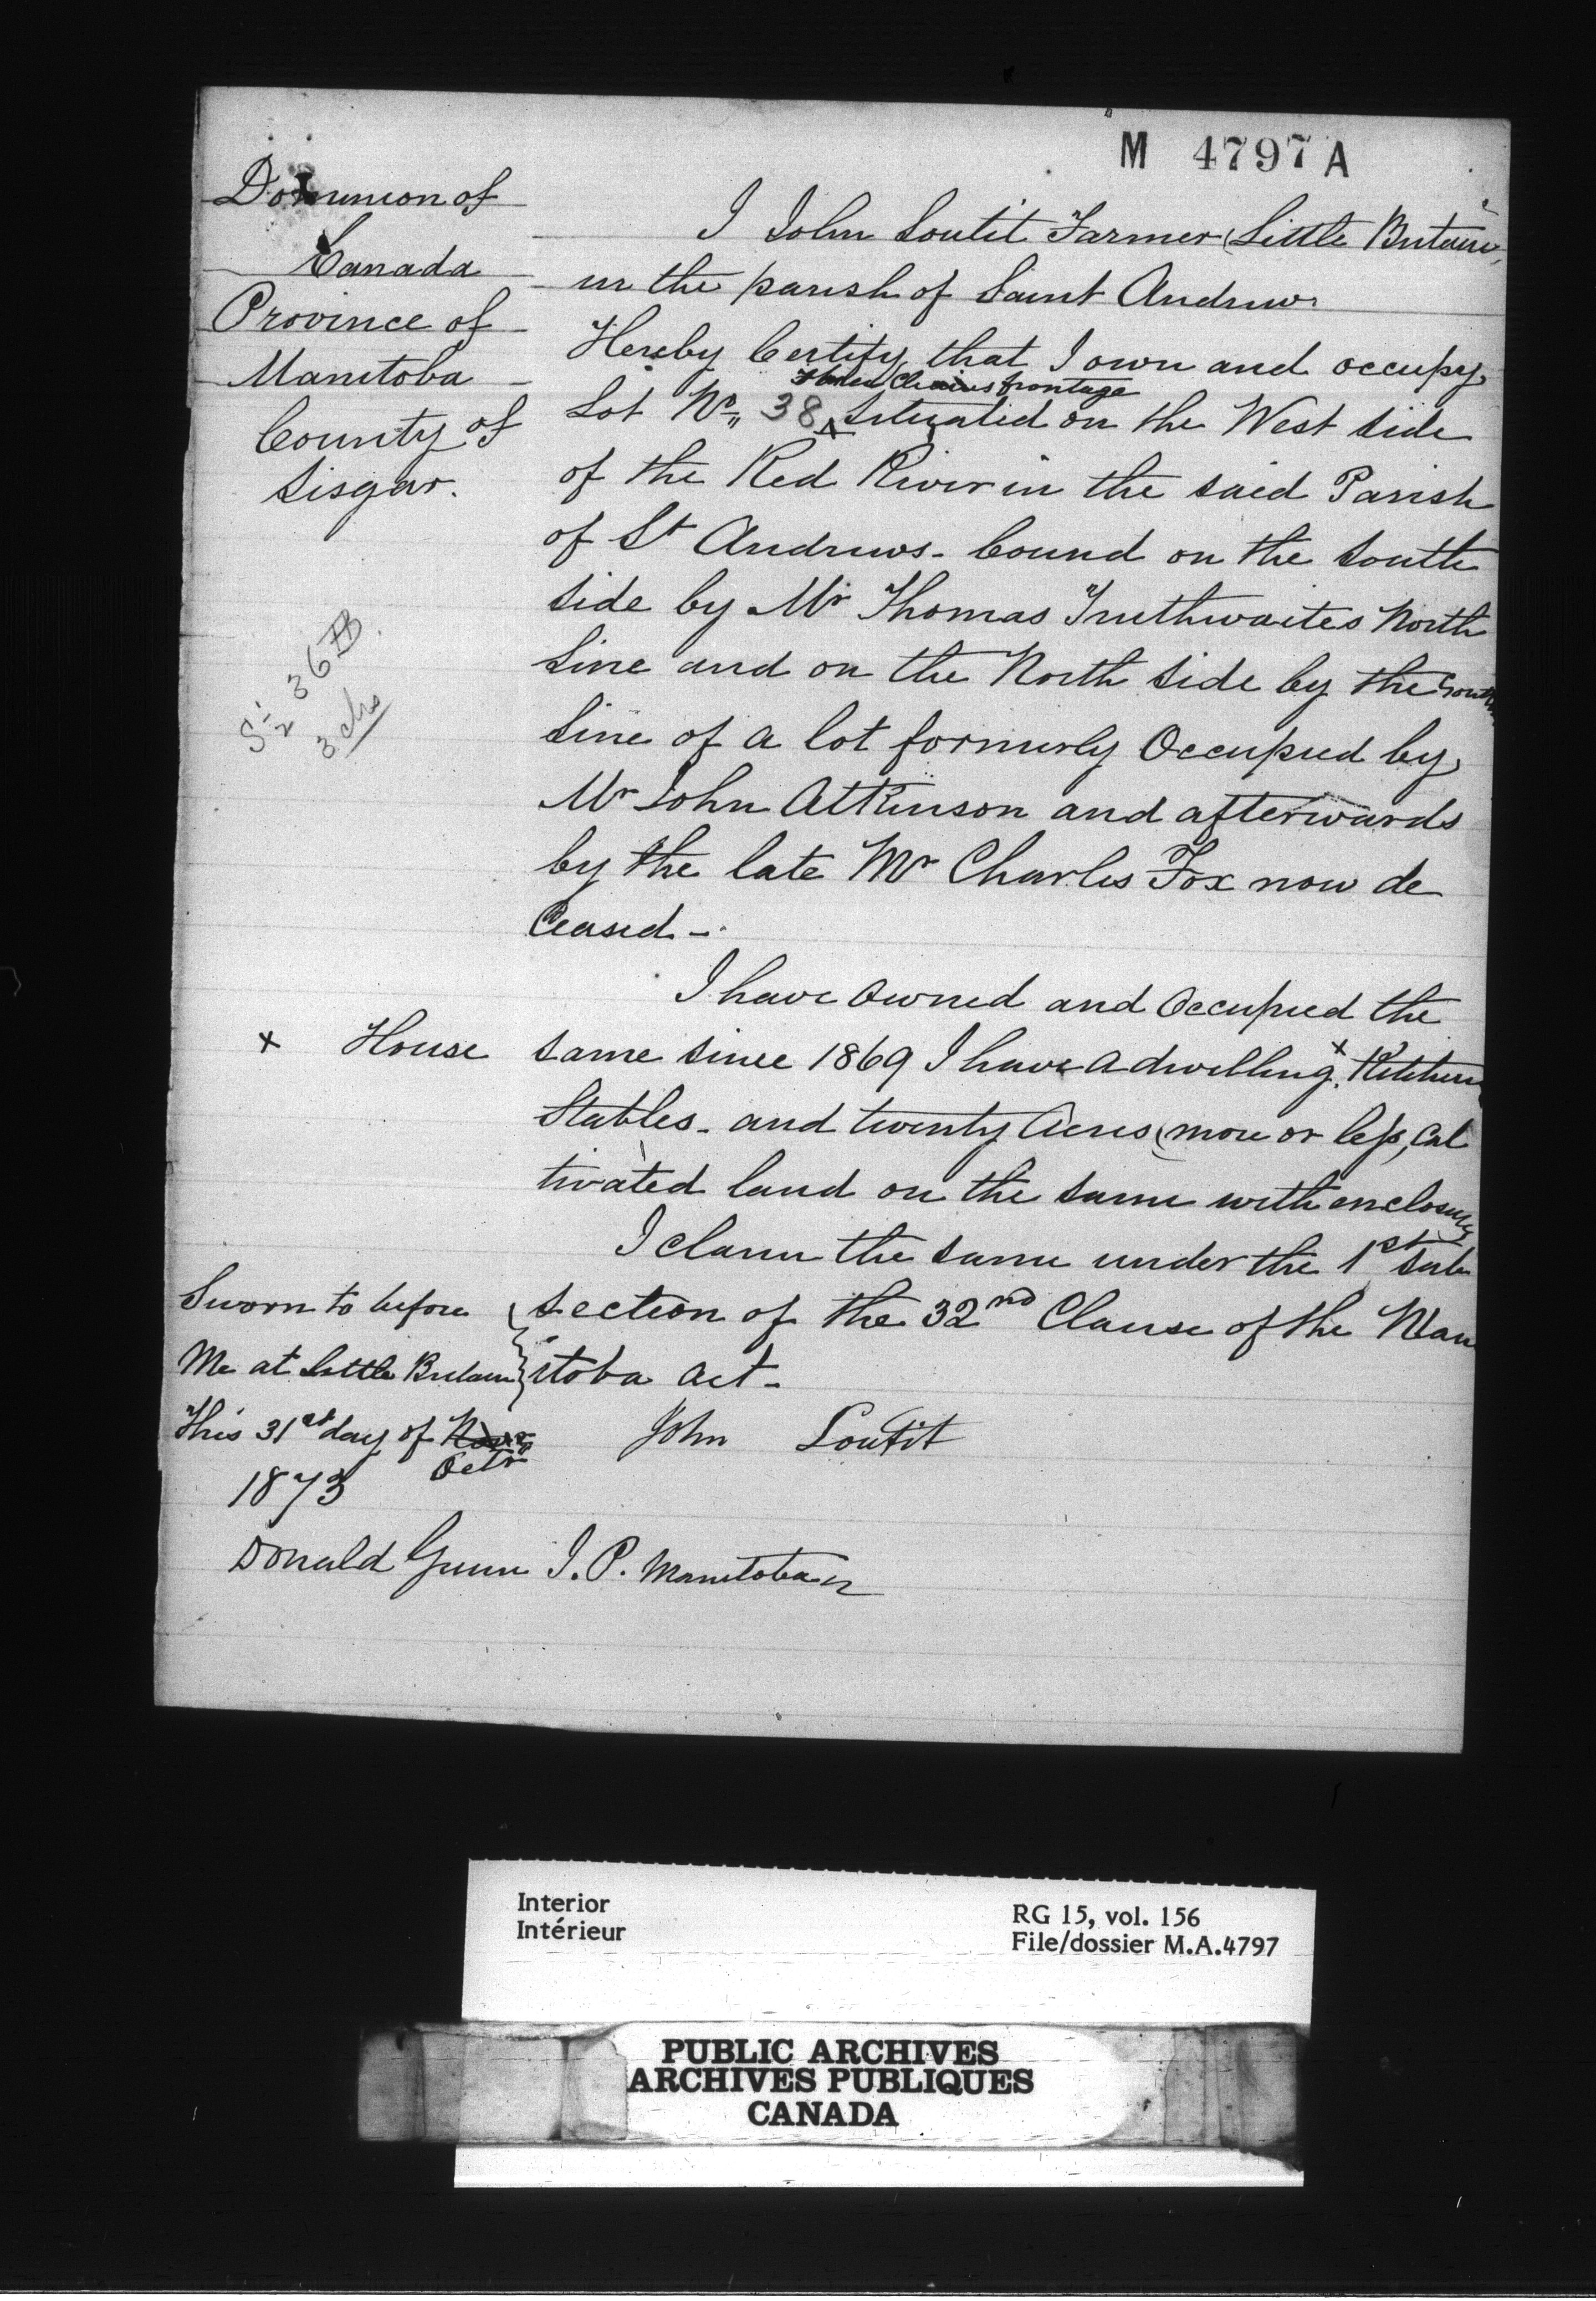 M 4797 A
Dominion of
Canada
Province of
Manitoba
County of
Lisgar.
I John Loutit Farmer (Little Britain,
in the parish of Saint Andrews
Hereby Certify that I own and occupy
three Chains frontage
Lot No 38 Situated on the West side
of the Red River in the said Parish
of St Andrews - bound on the South
side by Mr Thomas Truthwaites North
Line and on the North side by the South
Line of a lot formerly Occupied by
Mr John Atkinson and afterwards
by the late Mr Charles Fox now de
Ceased -
S ½ 36
3 chs
I have owned and occupied the
x House
same since 1869 I have a dwelling x Kitchen
Stables - and twenty Acres (more or less, Cul
tivated land on the same with enclosures
I claim the same under the 1st Sub
section of the 32nd Clause of the Man
itoba act -
Sworn to before
Me at Little Britain
This 31st day of Novr
Octr
1873
John Loutit
Donald Gunn J. P. Manitoba
Interior
Intérieur
RG 15, vol. 156
File/dossier M.A.4797
PUBLIC ARCHIVES
ARCHIVES PUBLIQUES
CANADA